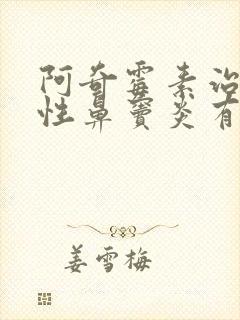 阿奇霉素治
性鼻窦炎有
姜雪梅